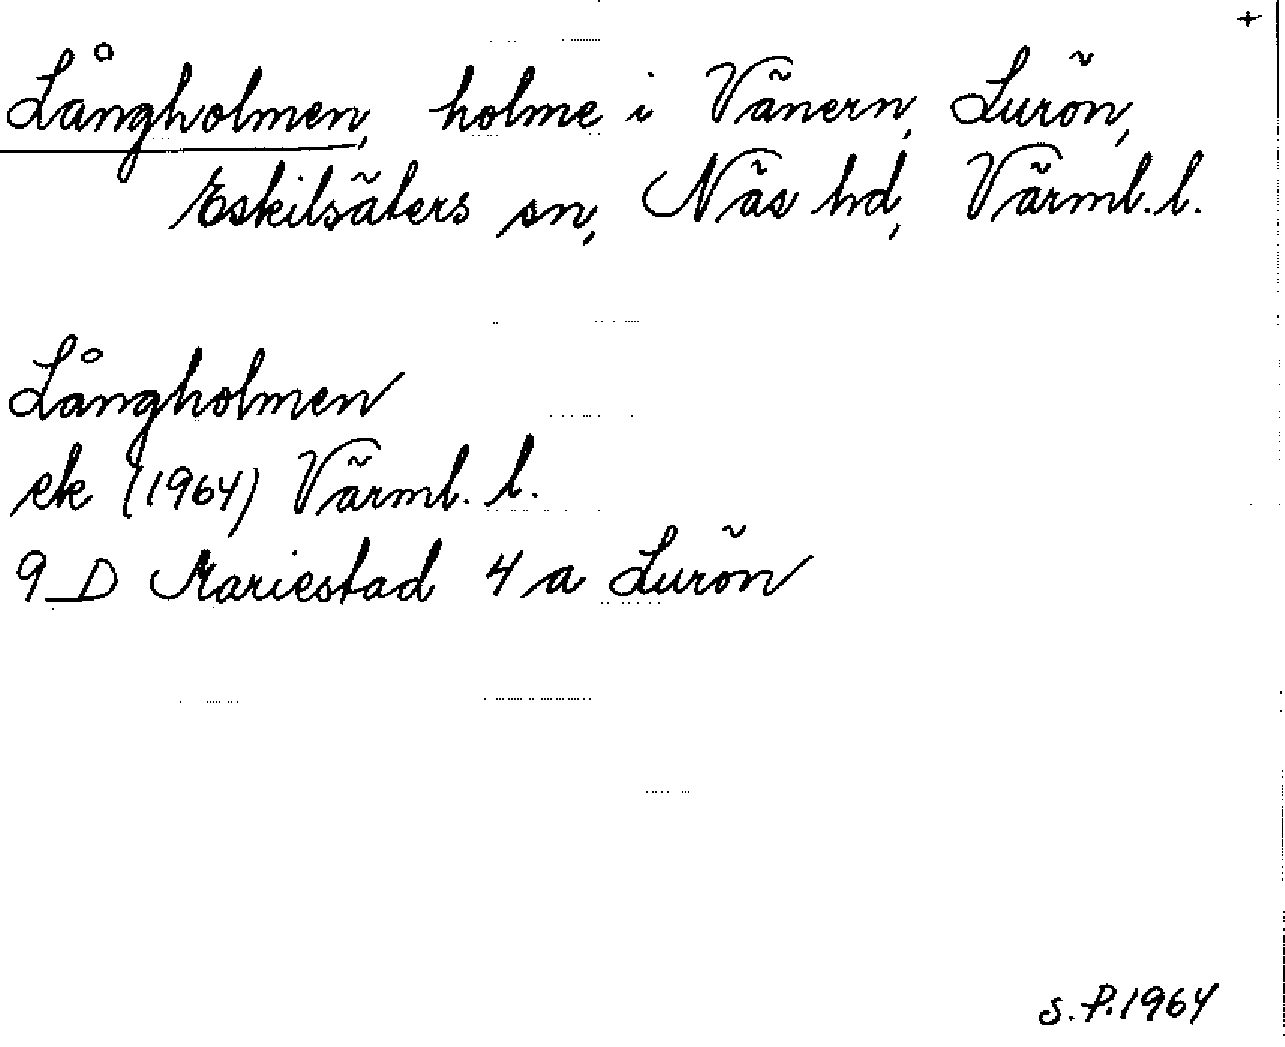 +
Långholmen, holme i Vänern, Lurön,
Eskilsäters sn, Näs hd, Värml. l.
Långholmen
ek (1964) Värml. l.
9 D Mariestad 4 a Lurön
S.P.1964